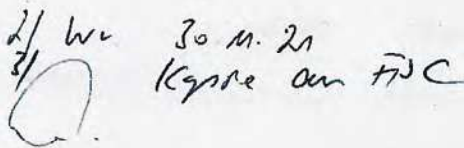 2/ Wv. 30.11.21
3/ Kopie an FDC